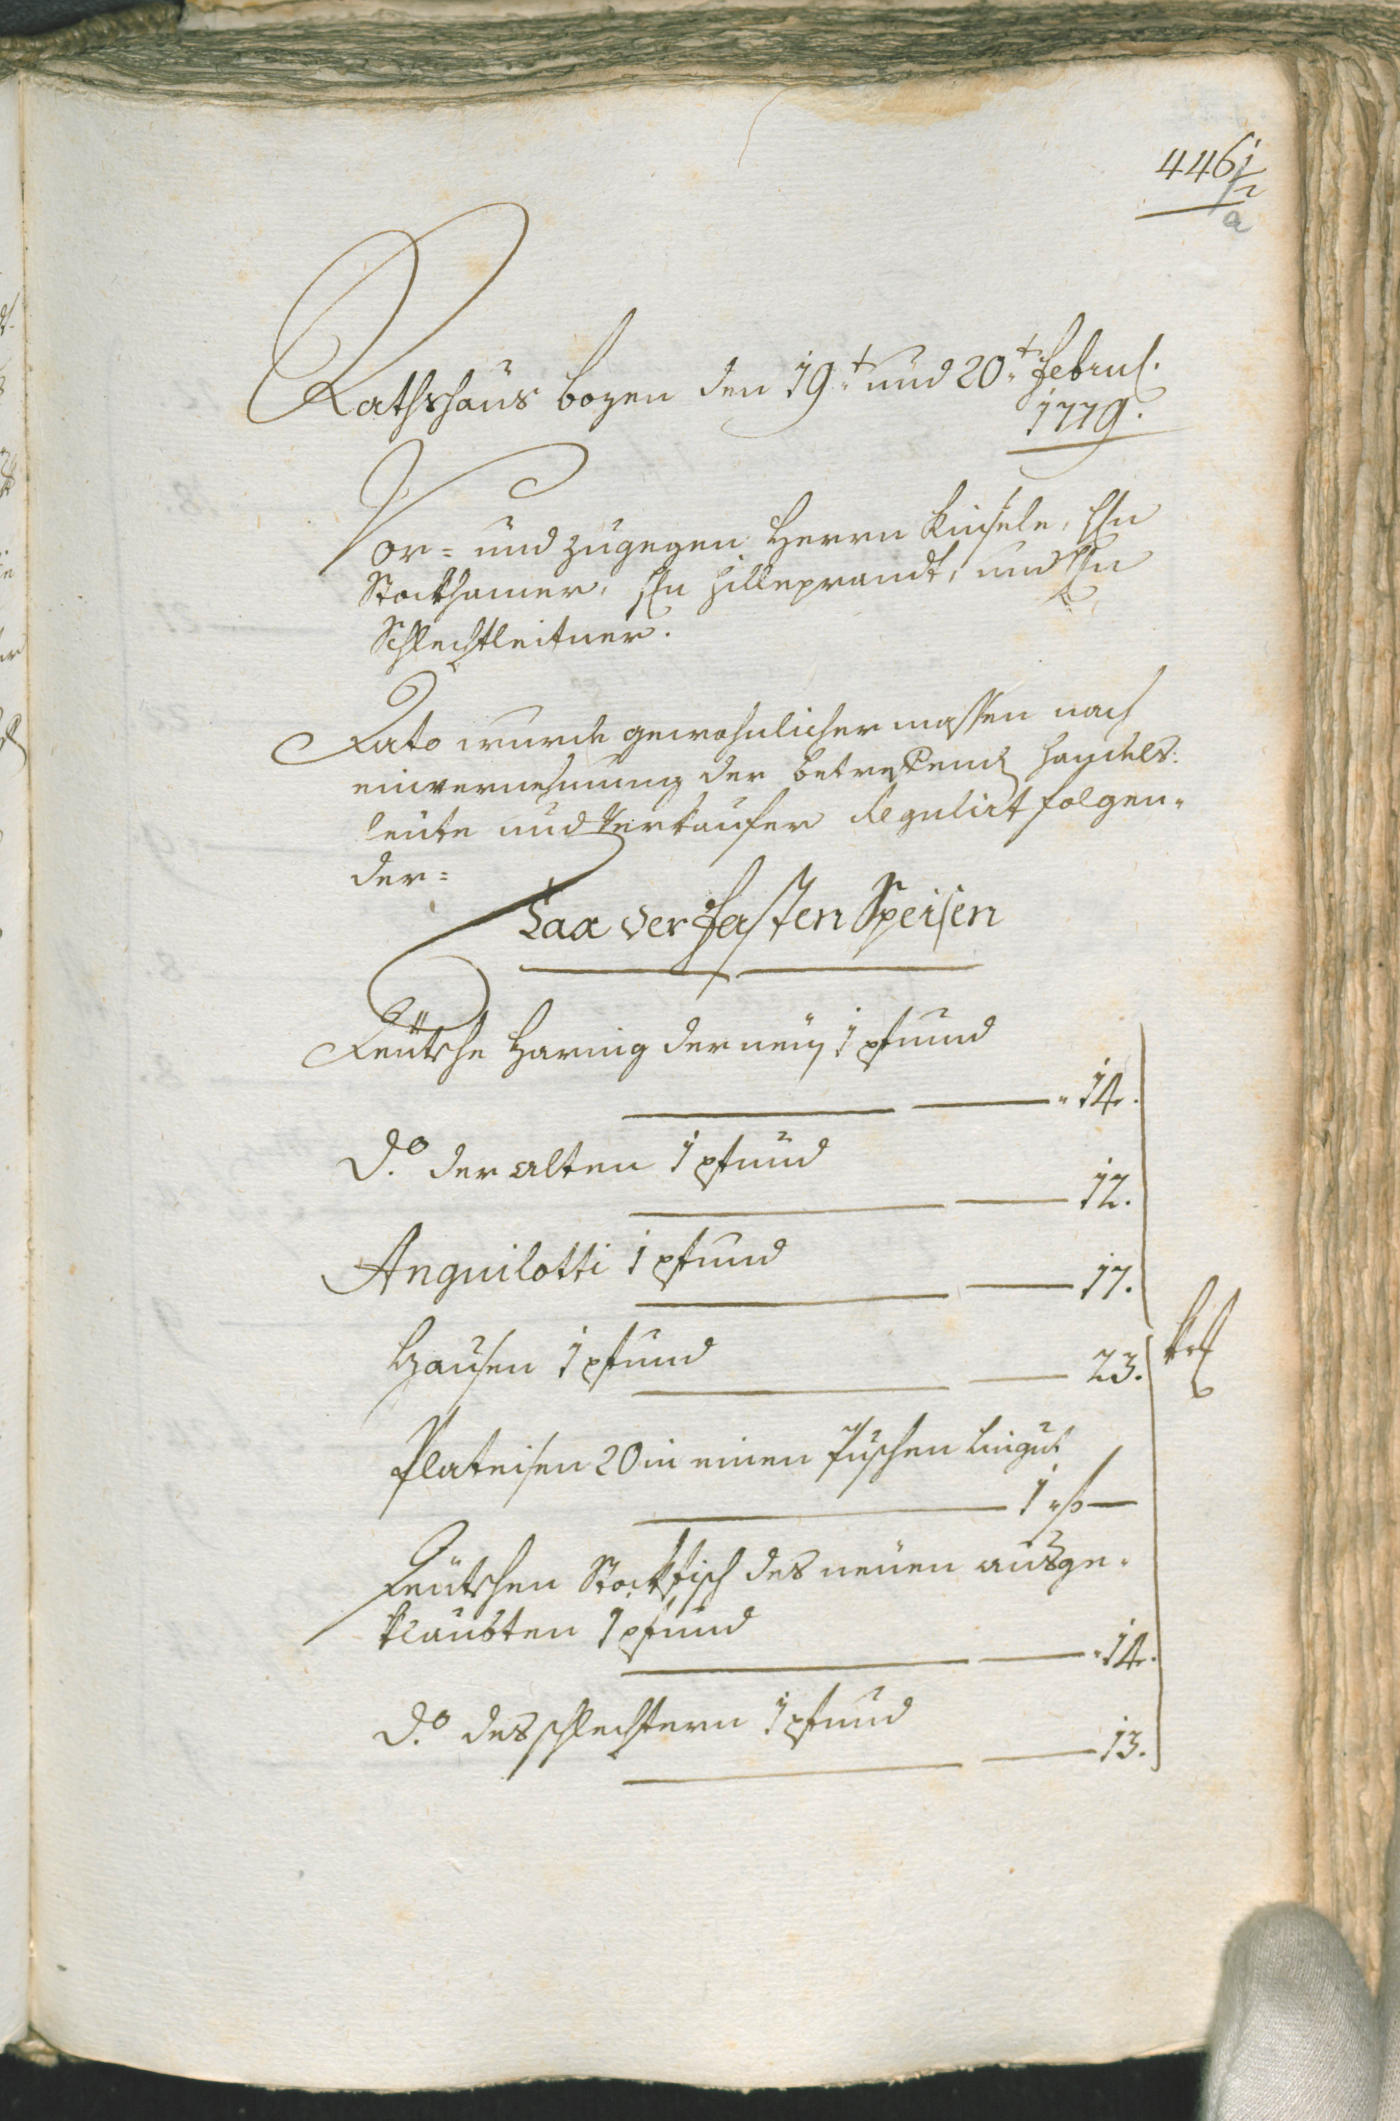 446 1/2
a
Rathshaus bozen den 19.t und 20.t Februar.
1779.
Vor= und zugegen Herrn Kinsele, Hn
Stockhamer, Hn Hilleprandt, und Hn
Schlechtleitner.
Dato wurde gewohnlicher massen nach
einvernehmung der betreffend Handels:
leüte und Verkaufer Regulirt folgen„
der=
Tax der Fasten Speisen
Deütsche Haring der neüen 1 pfund
„ 14.
D.o der alten 1 pfund
12.
Anguilotti 1 pfund
17.
Hausen 1 pfund
23.
Plateisen 20 in einen Puschen
1 f —
Deütschen Stockfisch des neüen ausge„
klaubten 1 pfund
„ 14.
D.o des schlechtern 1 pfund
13.